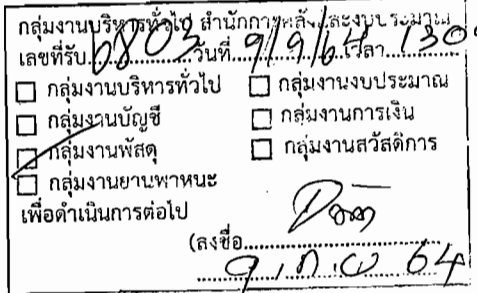 กลุ่มงานบริหารทั่วไป สำนักการคลังและงบประมาณ
เลขที่รับ 6803 วันที่ 9/9/64 เวลา 130
☐ กลุ่มงานบริหารทั่วไป ☐ กลุ่มงานงบประมาณ
☐ กลุ่มงานบัญชี ☐ กลุ่มงานการเงิน
☐ กลุ่มงานพัสดุ ☐ กลุ่มงานสวัสดิการ
☐ กลุ่มงานยานพาหนะ
เพื่อดำเนินการต่อไป
(ลงชื่อ
9 ก.ย 64